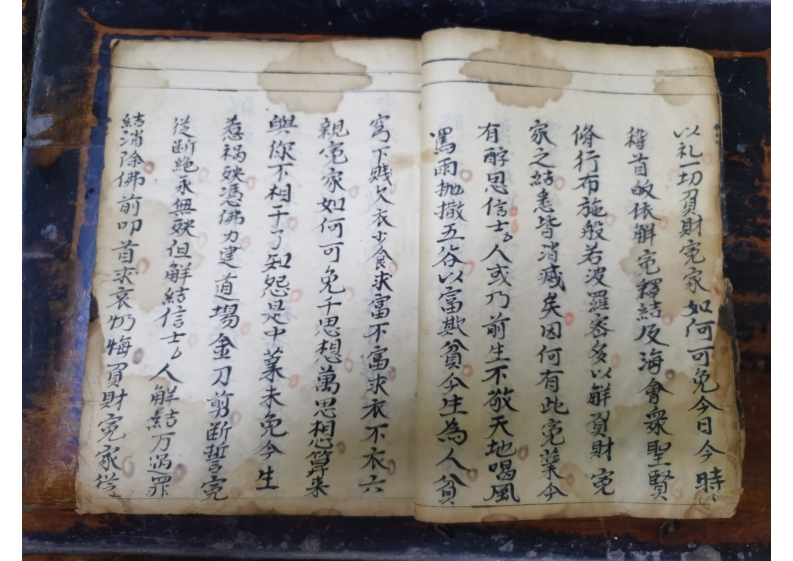 以礼一切負財寃家如何可免今日今時
稽首皈依解寃釋結反海會衆聖賢
脩行布施般若波羅蜜多以解負財寃
家之結悉皆消滅矣因何有此寃業今
有酧恩信士人或乃前生不敬天地喝風
罵雨抛撒五谷以富欺貧今生為人貧
窮下賎欠衣少食求富不富求衣不衣六
親寃家如何可免千思想萬思想筭来
與你不相干了知怨是中業未免今生
惹禍殃憑佛力建道塲金刀剪斷誓寃
從斷絶永無殃但解結信士人解結万過罪
結消除佛前叩首求哀忏悔負財寃家從